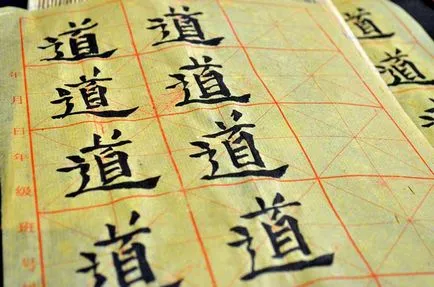 道 道
道 道
道 道
道 道
年月日年級班号
道
道